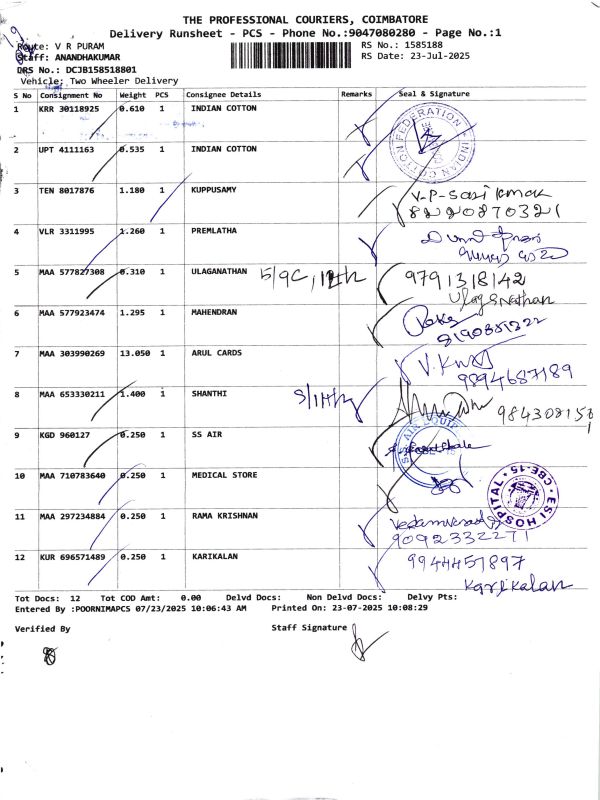 THE PROFESSIONAL COURIERS, COIMBATORE
Delivery Runsheet - PCS - Phone No.:9047080280 - Page No.:1
Route: V R PURAM
RS No.: 1585188
Staff: ANANDHAKUMAR
RS Date: 23-Jul-2025
DRS No.: DCJB158518801
Vehicle: Two Wheeler Delivery
S No Consignment No Weight PCS Consignee Details Remarks Seal & Signature
1 KRR 30118925 0.610 1 INDIAN COTTON
INDIAN COTTON FEDERATION
2 UPT 4111163 0.535 1 INDIAN COTTON
3 TEN 8017876 1.180 1 KUPPUSAMY
4 VLR 3311995 1.260 1 PREMLATHA
5 MAA 577827308 0.310 1 ULAGANATHAN 9791318142
Ulaganathan
6 MAA 577923474 1.295 1 MAHENDRAN
7 MAA 303990269 13.050 1 ARUL CARDS
9894687189
8 MAA 653330211 1.400 1 SHANTHI
9 KGD 960127 0.250 1 SS AIR
10 MAA 710783640 0.250 1 MEDICAL STORE
ESI HOSPITAL CBE-15
11 MAA 297234884 0.250 1 RAMA KRISHNAN
9092332271
12 KUR 696571489 0.250 1 KARIKALAN 9944457897
Karikalan
Tot Docs: 12 Tot COD Amt: 0.00 Delvd Docs: Non Delvd Docs: Delvy Pts:
Entered By :POORNIMAPCS 07/23/2025 10:06:43 AM Printed On: 23-07-2025 10:08:29
Verified By
Staff Signature